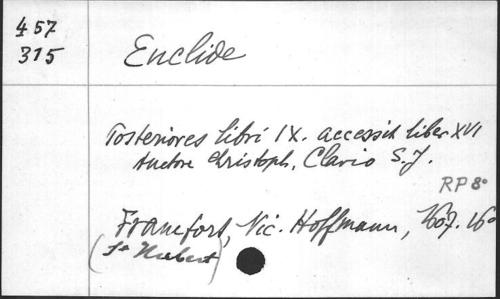 457
315
Euclide
Posteriores libri IX. accessit liber XVI
Auctore Christoph. Clavio S.J.
RP 8°
Francfort, Nic. Hoffmann, 1607. 16°
(St Hubert)